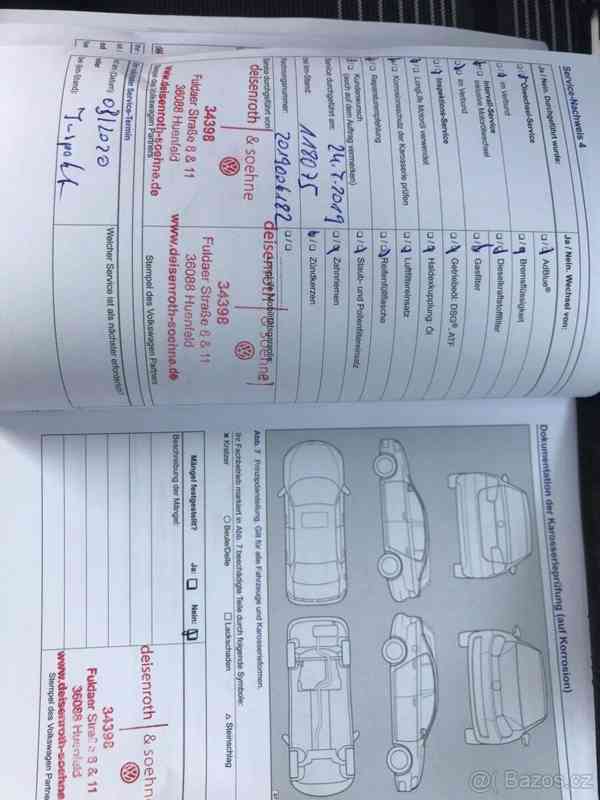 Service-Nachweis 4
Ja / Nein. Durchgeführt wurde:
Ölwechsel-Service
im Verbund
Intervall-Service
(inklusive Motorölwechsel)
im Verbund
Inspektions-Service
LongLife Motoröl verwendet
Korrosionsschutz der Karosserie prüfen
Reparaturempfehlung
Kundenwunsch
(auch auf dem Auftrag vermerken)
Service durchgeführt am: 24.7.2019
118075
2019006182
Service durchgeführt von:
deisenroth
& soehne
34398
Fuldaer Straße 8 & 11
36088 Huenfeld
www.deisenroth-soehne.de
Service-Termin
03/2020
oder
Inspekt.
Ja / Nein. Wechsel von:
AdBlue®
Bremsflüssigkeit
Dieselkraftstofffilter
Gasfilter
Getriebeöl, DSG®, ATF
Haldexkupplung, Öl
Luftfiltereinsatz
Reifenfüllflasche
Staub- und Pollenfiltereinsatz
Zahnriemen
Zündkerzen
deisenroth
& soehne
34398
Fuldaer Straße 8 & 11
36088 Huenfeld
www.deisenroth-soehne.de
Stempel des Volkswagen Partners
Welcher Service ist als nächster erforderlich?
Dokumentation der Karosserieprüfung (auf Korrosion)
Abb. 7 Prinzipdarstellung. Gilt für alle Fahrzeuge und Karosserieformen.
Ihr Fachbetrieb markiert in Abb. 7 beschädigte Teile durch folgende Symbole:
× Kratzer
○ Beule/Delle
□ Lackschaden
△ Steinschlag
Mängel festgestellt?
Ja:
Nein:
Beschreibung der Mängel:
deisenroth
& soehne
34398
Fuldaer Straße 8 & 11
36088 Huenfeld
www.deisenroth-soehne
Stempel des Volkswagen Partners
Bazos.cz